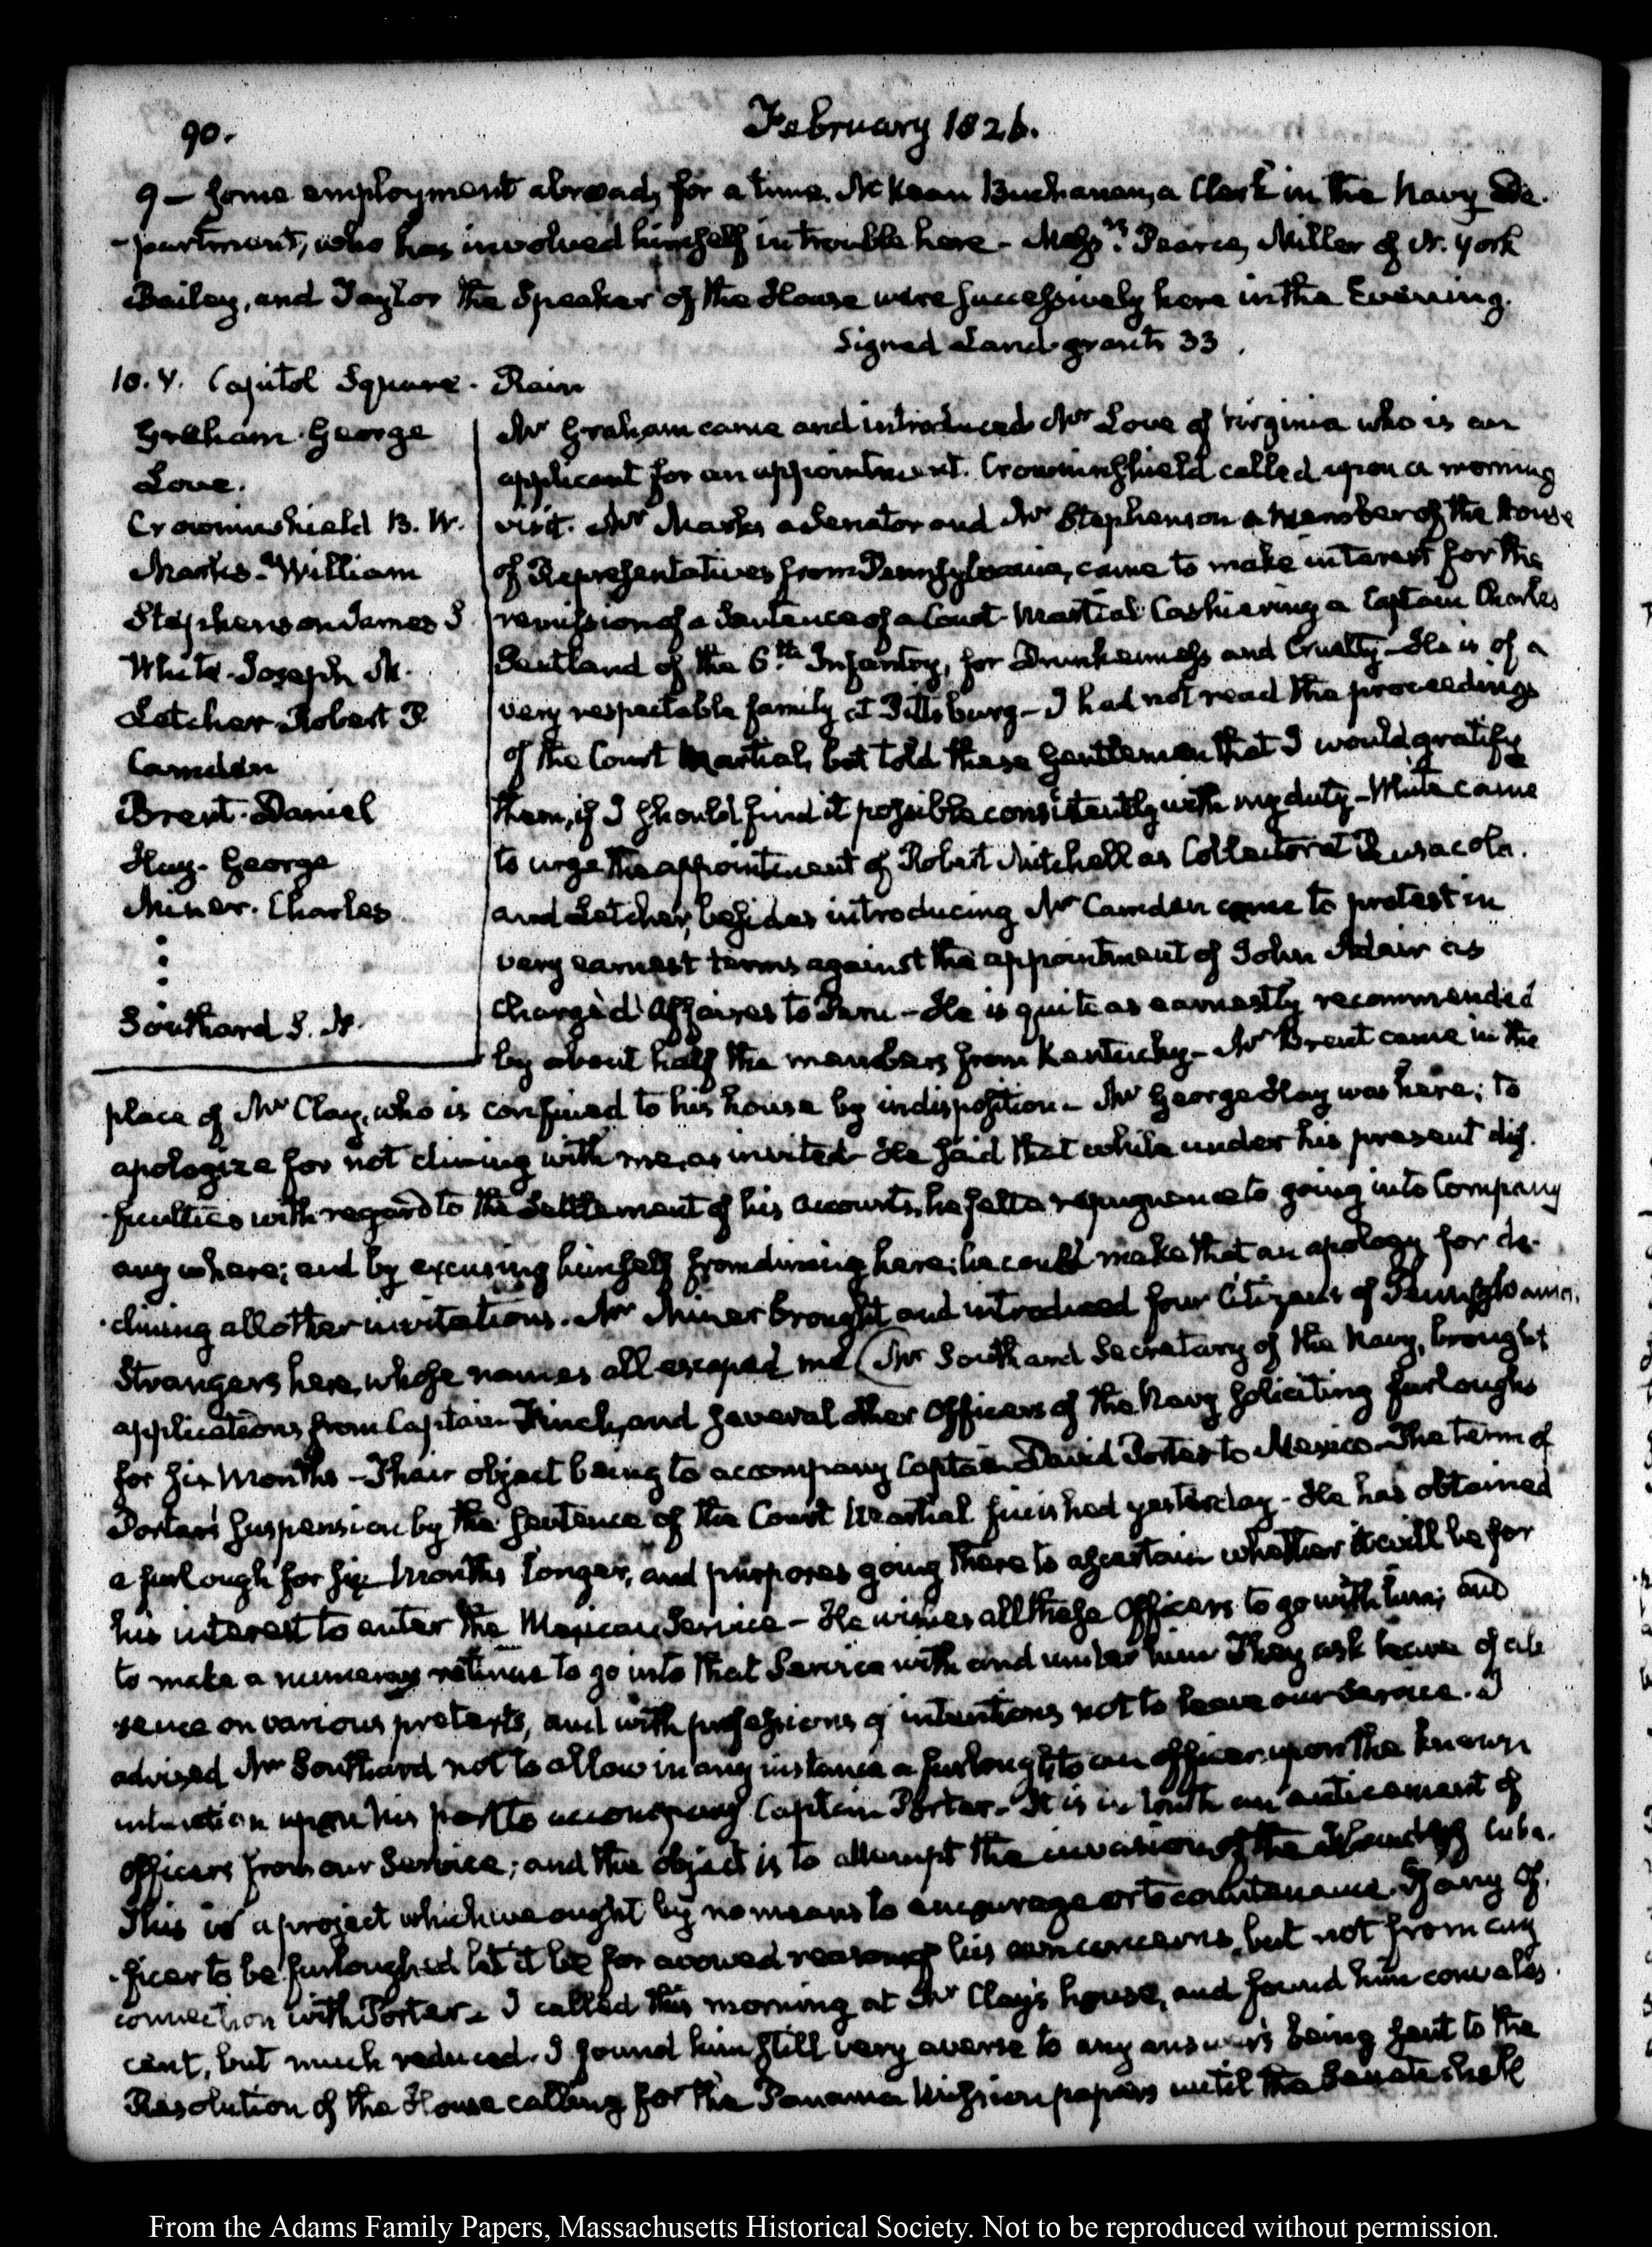 90.
February 1826.
9 — some employment abroad, for a time. McKean Buchanan, a Clerk in the Navy De-
-partment, who has involved himself in trouble here - Messrs. Pearce, Miller of N. York
Bailey, and Taylor the Speaker of the House were successively here in the Evening.
Signed Land-grants 33.
10. V. Capitol Square. Rain
Graham. George
Love.
Crowninshield B. W.
Marks. William
Stephenson James S
White. Joseph M.
Letcher Robert P
Camden
Brent. Daniel
Hay. George
Miner. Charles
Southard S. L.
Mr Graham came and introduced Mr Love of Virginia who is an
applicant for an appointment. Crowninshield called upon a morning
visit. Mr Marks a Senator and Mr Stephenson a Member of the House
of Representatives from Pennsylvania, came to make interest for the
remission of a Sentence of a Court-Martial Cashiering a Captain Charles
Pentland of the 6th Infantry, for Drunkenness and Cruelty - He is of a
very respectable family at Pittsburg - I had not read the proceedings
of the Court Martial, but told these Gentlemen that I would gratify
them, if I should find it possible consistently with my duty - White came
to urge the appointment of Robert Mitchell as Collector at Pensacola.
and Letcher, besides introducing Mr Camden came to protest in
very earnest terms against the appointment of John Adair as
Chargé d'Affaires to Peru - He is quite as earnestly recommended
by about half the members from Kentucky - Mr Brent came in the
place of Mr Clay, who is confined to his house by indisposition - Mr George Hay was here; to
apologize for not dining with me, as invited - He said that while under his present dif-
-ficulties with regard to the Settlement of his accounts, he felt a repugnance to going into Company
any where; and by excusing himself from dining here; he could make that an apology for de-
-clining all other invitations. Mr Miner brought and introduced four Citizens of Pennsylvania,
Strangers here, whose names all escaped me (Mr Southard Secretary of the Navy, brought
applications from Captain Finch, and several other Officers of the Navy soliciting furloughs
for six Months - Their object being to accompany Captain David Porter to Mexico - The term of
Porter's suspension by the sentence of the Court Martial finished yesterday - He has obtained
a furlough for six Months longer, and purposes going there to ascertain whether it will be for
his interest to enter the Mexican Service - He wishes all these Officers to go with him; and
to make a numerous retinue to go into that Service with and under him They ask leave of ab
sence on various pretexts, and with professions of intentions not to leave our Service. I
advised Mr Southard not to allow in any instance a furlough to an officer upon the known
intention upon his part to accompany Captain Porter - It is in truth an enticement of
Officers from our Service; and the object is to attempt the invasion of the Island of Cuba.
This is a project which we ought by no means to encourage or to countenance. If any of-
-ficer to be furloughed let it be for avowed reasons of his own concerns, but not from any
connection with Porter - I called this morning at Mr Clay's house, and found him convales-
cent, but much reduced. I found him still very averse to any answers being sent to the
Resolution of the House calling for the Panama Mission papers until the Senate shall
From the Adams Family Papers, Massachusetts Historical Society. Not to be reproduced without permission.